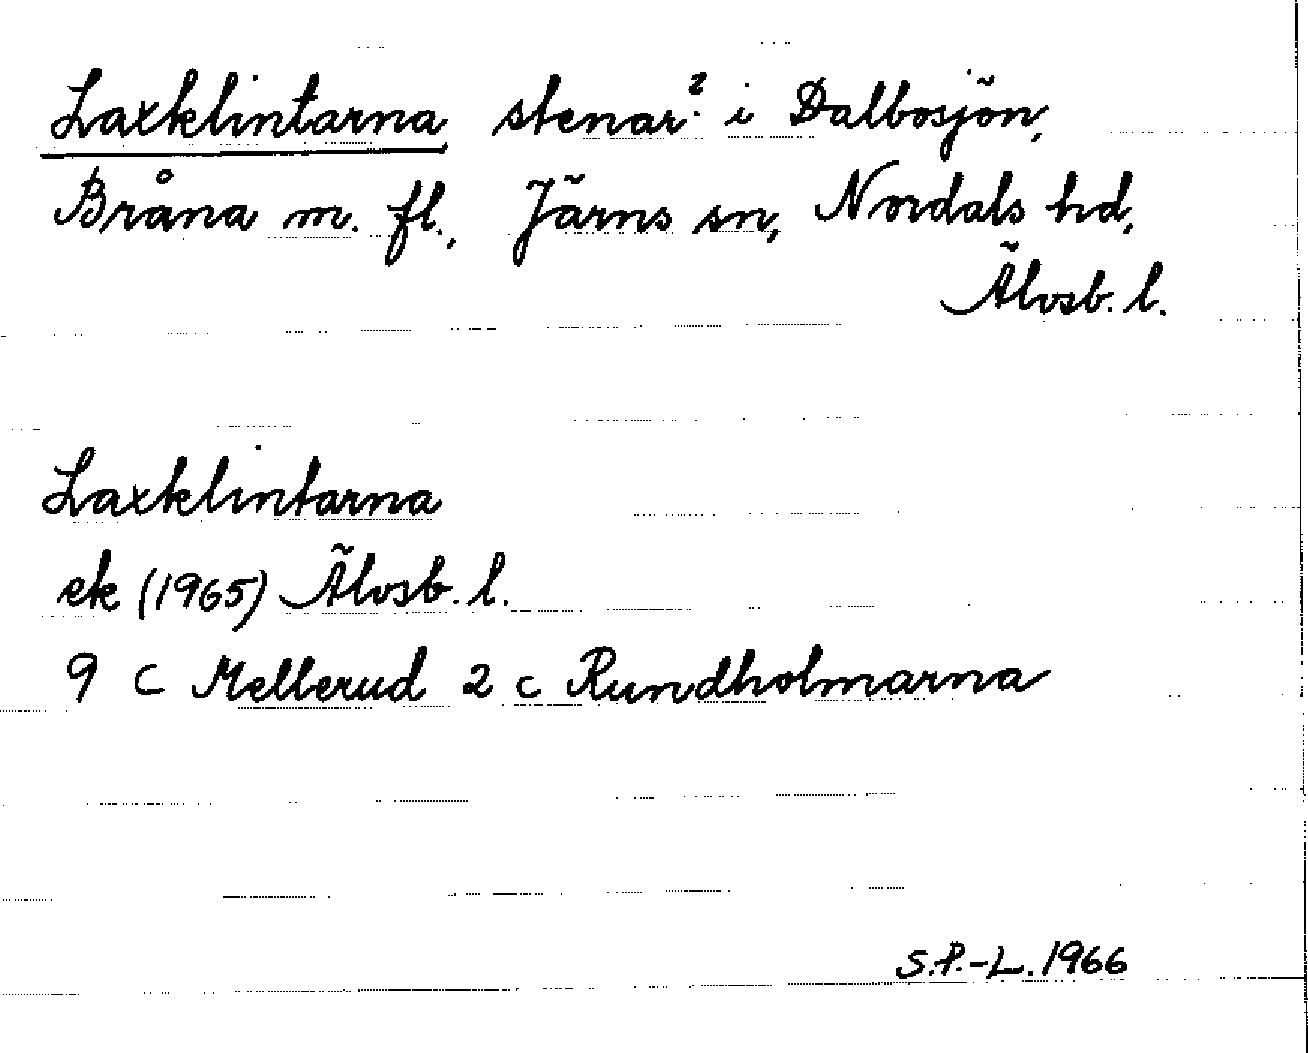 Laxklintarna stenar? i Dalbosjön,
Bråna m. fl., Järns sn, Nordals hd,
Älvsb. l.
Laxklintarna
ek (1965) Älvsb. l.
9 C Mellerud 2 c Rundholmarna
S.P.-L. 1966